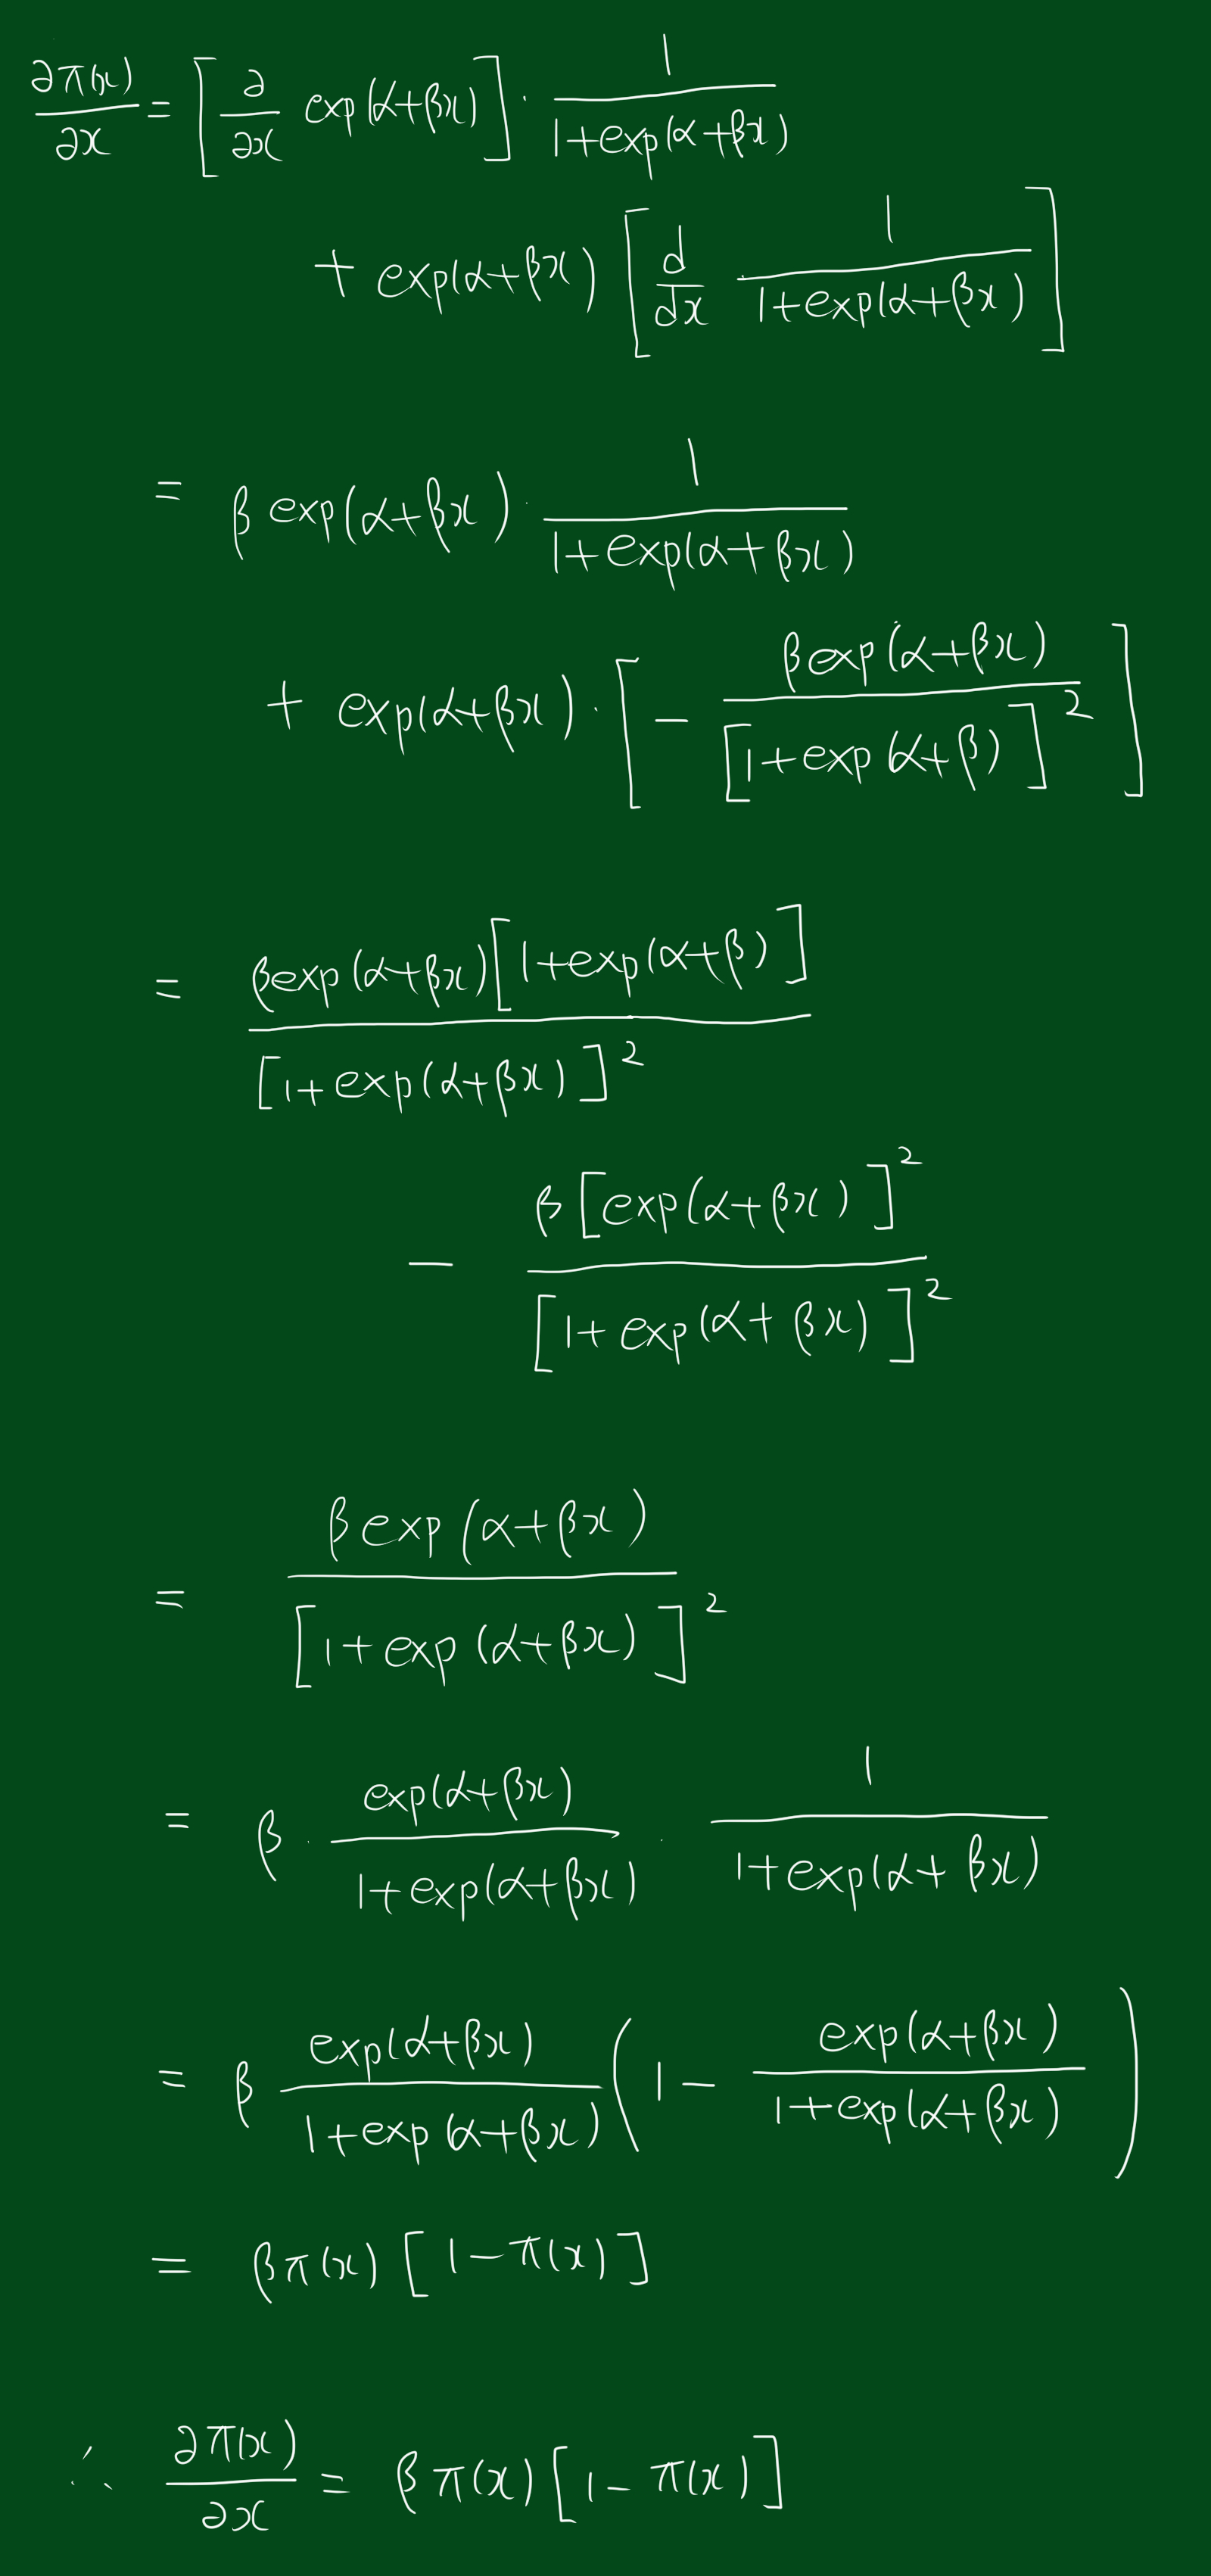 ∂π(x)/∂x = [∂/∂x exp(α+βx)] · 1/(1+exp(α+βx))
+ exp(α+βx) [d/dx 1/(1+exp(α+βx))]
= β exp(α+βx) · 1/(1+exp(α+βx))
+ exp(α+βx) · [− βexp(α+βx)/[1+exp(α+β)]²]
= βexp(α+βx)[1+exp(α+β)]/[1+exp(α+βx)]²
− β[exp(α+βx)]²/[1+exp(α+βx)]²
= βexp(α+βx)/[1+exp(α+βx)]²
= β · exp(α+βx)/(1+exp(α+βx)) · 1/(1+exp(α+βx))
= β exp(α+βx)/(1+exp(α+βx)) (1 − exp(α+βx)/(1+exp(α+βx)))
= βπ(x) [1−π(x)]
∴ ∂π(x)/∂x = βπ(x)[1−π(x)]